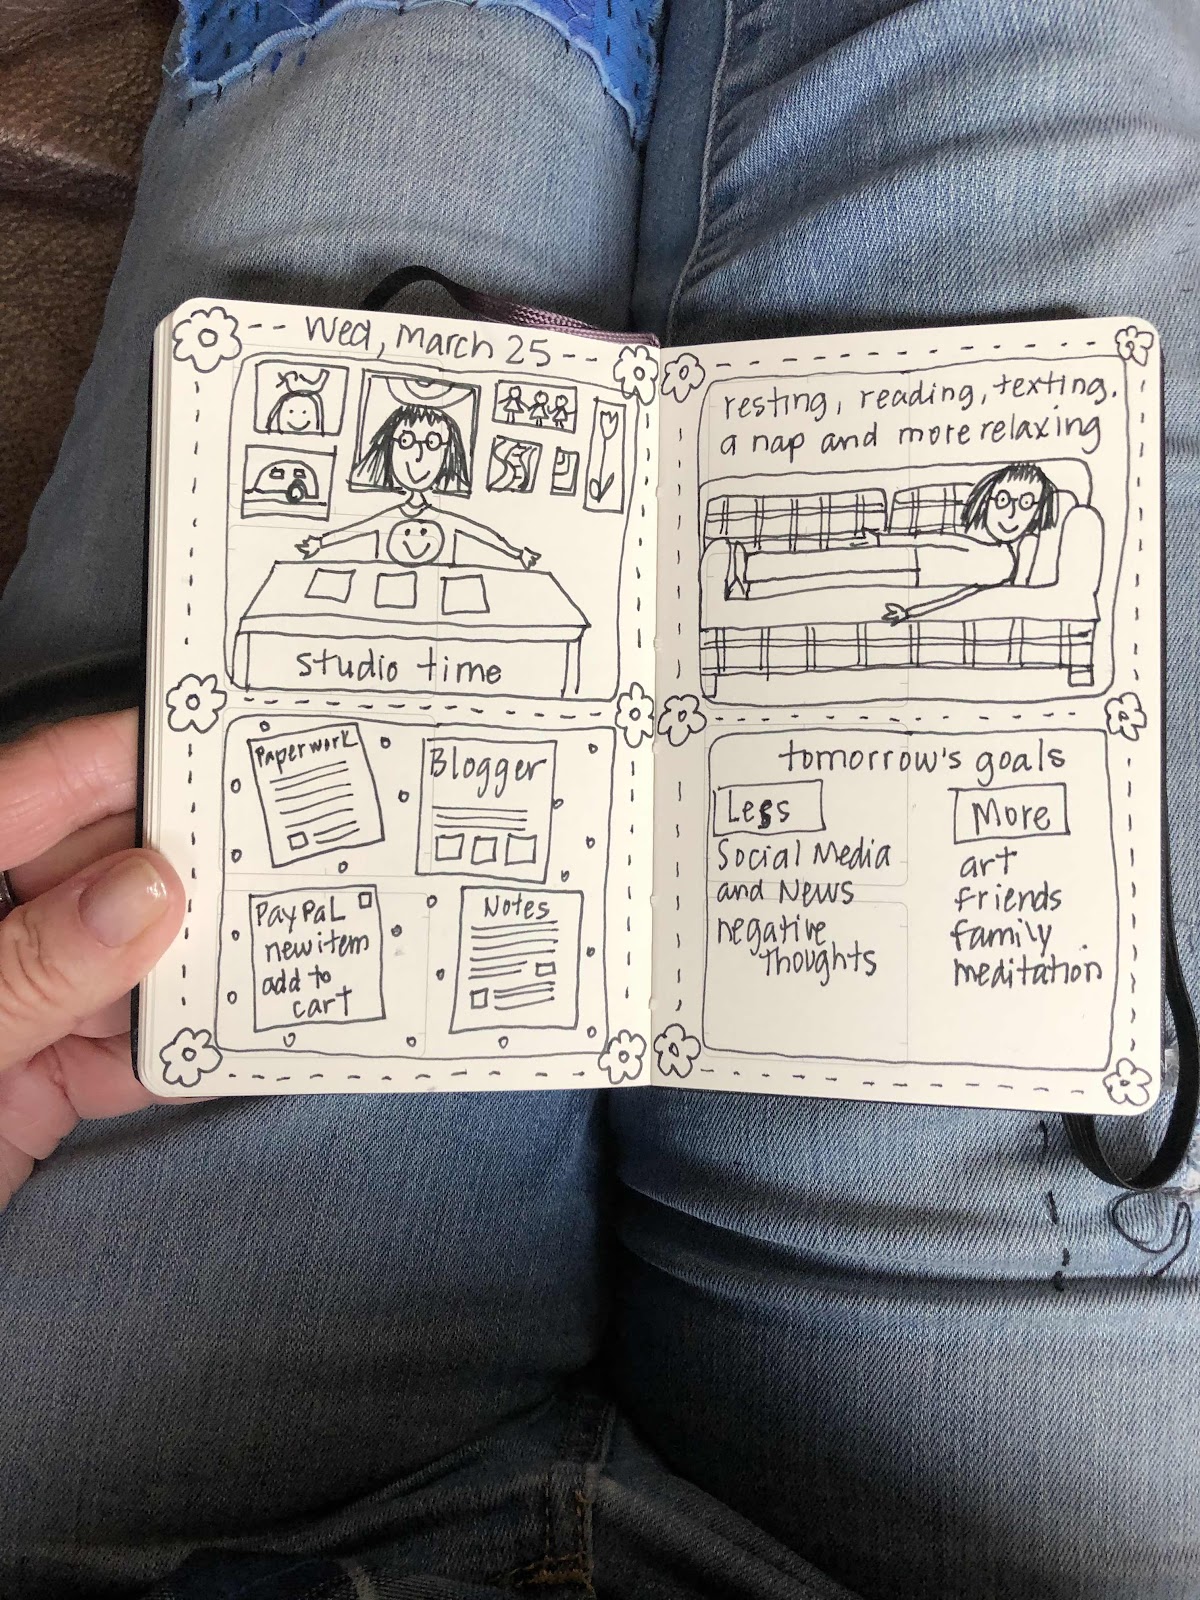 Wed, March 25
studio time
Paperwork
Blogger
PayPaL
new item
add to
cart
Notes
resting, reading, texting,
a nap and more relaxing
tomorrow's goals
Less
Social Media
and News
negative
thoughts
More
art
friends
family
meditation